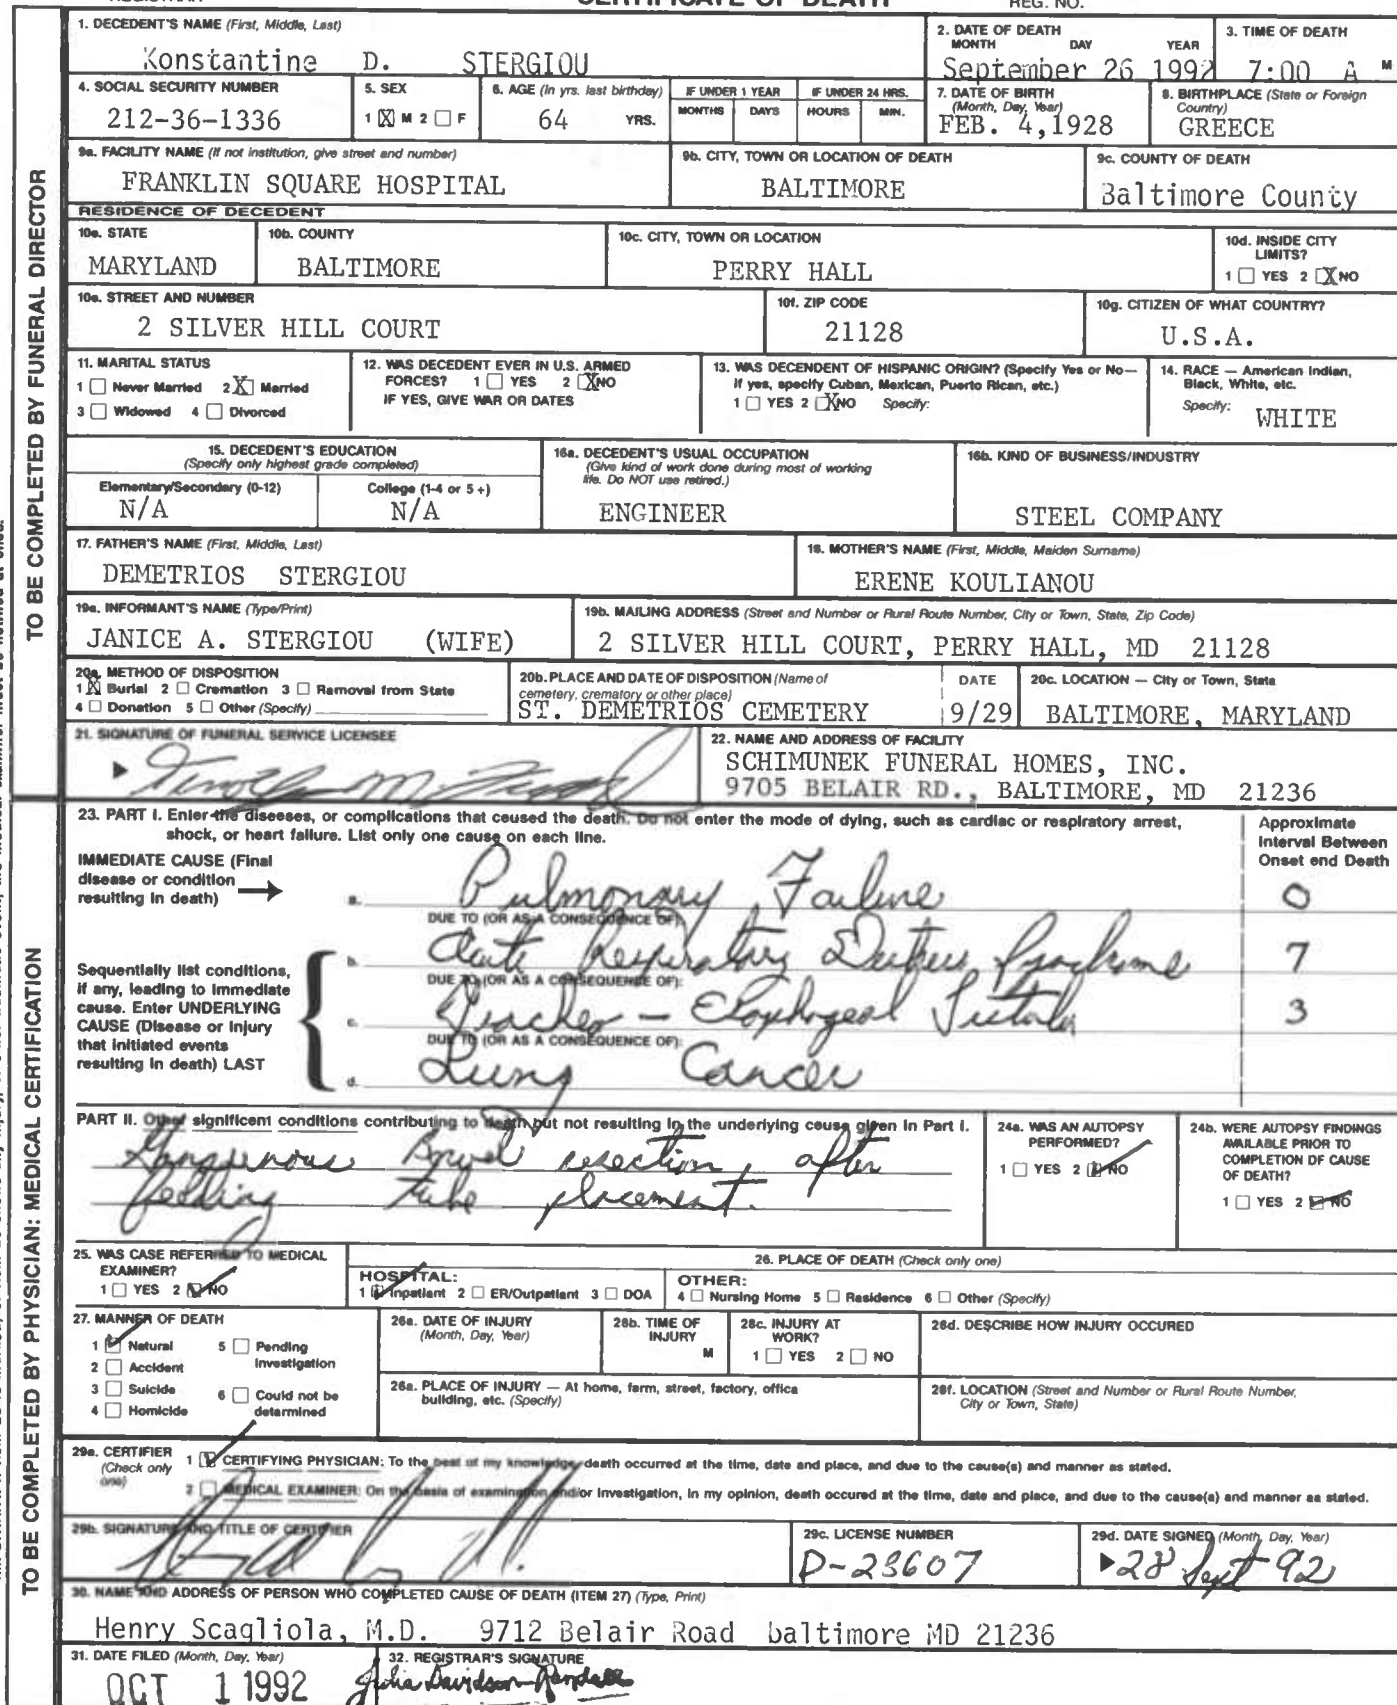 CERTIFICATE OF DEATH
REG. NO.
1. DECEDENT'S NAME (First, Middle, Last)
Konstantine D. STERGIOU
2. DATE OF DEATH
MONTH DAY YEAR
September 26 1992
3. TIME OF DEATH
7:00 A M
4. SOCIAL SECURITY NUMBER
212-36-1336
5. SEX
1 ☒ M 2 ☐ F
6. AGE (In yrs. last birthday)
64 YRS.
IF UNDER 1 YEAR
MONTHS DAYS
IF UNDER 24 HRS.
HOURS MIN.
7. DATE OF BIRTH
(Month, Day, Year)
FEB. 4,1928
8. BIRTHPLACE (State or Foreign
Country)
GREECE
9a. FACILITY NAME (If not institution, give street and number)
FRANKLIN SQUARE HOSPITAL
9b. CITY, TOWN OR LOCATION OF DEATH
BALTIMORE
9c. COUNTY OF DEATH
Baltimore County
RESIDENCE OF DECEDENT
10a. STATE
MARYLAND
10b. COUNTY
BALTIMORE
10c. CITY, TOWN OR LOCATION
PERRY HALL
10d. INSIDE CITY
LIMITS?
1 ☐ YES 2 ☒ NO
10e. STREET AND NUMBER
2 SILVER HILL COURT
10f. ZIP CODE
21128
10g. CITIZEN OF WHAT COUNTRY?
U.S.A.
11. MARITAL STATUS
1 ☐ Never Married 2 ☒ Married
3 ☐ Widowed 4 ☐ Divorced
12. WAS DECEDENT EVER IN U.S. ARMED
FORCES? 1 ☐ YES 2 ☒ NO
IF YES, GIVE WAR OR DATES
13. WAS DECENDENT OF HISPANIC ORIGIN? (Specify Yes or No—
If yes, specify Cuban, Mexican, Puerto Rican, etc.)
1 ☐ YES 2 ☒ NO Specify:
14. RACE — American Indian,
Black, White, etc.
Specify: WHITE
15. DECEDENT'S EDUCATION
(Specify only highest grade completed)
Elementary/Secondary (0-12)
N/A
College (1-4 or 5+)
N/A
16a. DECEDENT'S USUAL OCCUPATION
(Give kind of work done during most of working
life. Do NOT use retired.)
ENGINEER
16b. KIND OF BUSINESS/INDUSTRY
STEEL COMPANY
17. FATHER'S NAME (First, Middle, Last)
DEMETRIOS STERGIOU
18. MOTHER'S NAME (First, Middle, Maiden Surname)
ERENE KOULIANOU
19a. INFORMANT'S NAME (Type/Print)
JANICE A. STERGIOU (WIFE)
19b. MAILING ADDRESS (Street and Number or Rural Route Number, City or Town, State, Zip Code)
2 SILVER HILL COURT, PERRY HALL, MD 21128
20a. METHOD OF DISPOSITION
1 ☒ Burial 2 ☐ Cremation 3 ☐ Removal from State
4 ☐ Donation 5 ☐ Other (Specify)
20b. PLACE AND DATE OF DISPOSITION (Name of
cemetery, crematory or other place)
ST. DEMETRIOS CEMETERY
DATE
9/29
20c. LOCATION — City or Town, State
BALTIMORE, MARYLAND
21. SIGNATURE OF FUNERAL SERVICE LICENSEE
22. NAME AND ADDRESS OF FACILITY
SCHIMUNEK FUNERAL HOMES, INC.
9705 BELAIR RD., BALTIMORE, MD 21236
TO BE COMPLETED BY FUNERAL DIRECTOR
23. PART I. Enter the diseases, or complications that caused the death. Do not enter the mode of dying, such as cardiac or respiratory arrest,
shock, or heart failure. List only one cause on each line.
Approximate
Interval Between
Onset and Death
IMMEDIATE CAUSE (Final
disease or condition
resulting in death)
a. Pulmonary Failure 0
DUE TO (OR AS A CONSEQUENCE OF):
b. Acute Respiratory Distress Syndrome 7
DUE TO (OR AS A CONSEQUENCE OF):
c. Tracheo - Esophogeal Fistula 3
DUE TO (OR AS A CONSEQUENCE OF):
d. Lung Cancer
Sequentially list conditions,
if any, leading to immediate
cause. Enter UNDERLYING
CAUSE (Disease or injury
that initiated events
resulting in death) LAST
PART II. Other significant conditions contributing to death but not resulting in the underlying cause given in Part I.
Gangrenous Bowel resection, after
feeding tube placement.
24a. WAS AN AUTOPSY
PERFORMED?
1 ☐ YES 2 ☑ NO
24b. WERE AUTOPSY FINDINGS
AVAILABLE PRIOR TO
COMPLETION OF CAUSE
OF DEATH?
1 ☐ YES 2 ☑ NO
25. WAS CASE REFERRED TO MEDICAL
EXAMINER?
1 ☐ YES 2 ☑ NO
26. PLACE OF DEATH (Check only one)
HOSPITAL:
1 ☑ Inpatient 2 ☐ ER/Outpatient 3 ☐ DOA
OTHER:
4 ☐ Nursing Home 5 ☐ Residence 6 ☐ Other (Specify)
27. MANNER OF DEATH
1 ☑ Natural 5 ☐ Pending
Investigation
2 ☐ Accident
3 ☐ Suicide 6 ☐ Could not be
determined
4 ☐ Homicide
28a. DATE OF INJURY
(Month, Day, Year)
28b. TIME OF
INJURY
M
28c. INJURY AT
WORK?
1 ☐ YES 2 ☐ NO
28d. DESCRIBE HOW INJURY OCCURED
28e. PLACE OF INJURY — At home, farm, street, factory, office
building, etc. (Specify)
28f. LOCATION (Street and Number or Rural Route Number,
City or Town, State)
29a. CERTIFIER
(Check only
one)
1 ☑ CERTIFYING PHYSICIAN: To the best of my knowledge, death occurred at the time, date and place, and due to the cause(s) and manner as stated.
2 ☐ MEDICAL EXAMINER: On the basis of examination and/or investigation, in my opinion, death occured at the time, date and place, and due to the cause(s) and manner as stated.
29b. SIGNATURE AND TITLE OF CERTIFIER
29c. LICENSE NUMBER
D-23607
29d. DATE SIGNED (Month, Day, Year)
28 Sept 92
30. NAME AND ADDRESS OF PERSON WHO COMPLETED CAUSE OF DEATH (ITEM 27) (Type, Print)
Henry Scagliola, M.D. 9712 Belair Road baltimore MD 21236
31. DATE FILED (Month, Day, Year)
OCT 1 1992
32. REGISTRAR'S SIGNATURE
Julia Davidson-Randall
TO BE COMPLETED BY PHYSICIAN: MEDICAL CERTIFICATION